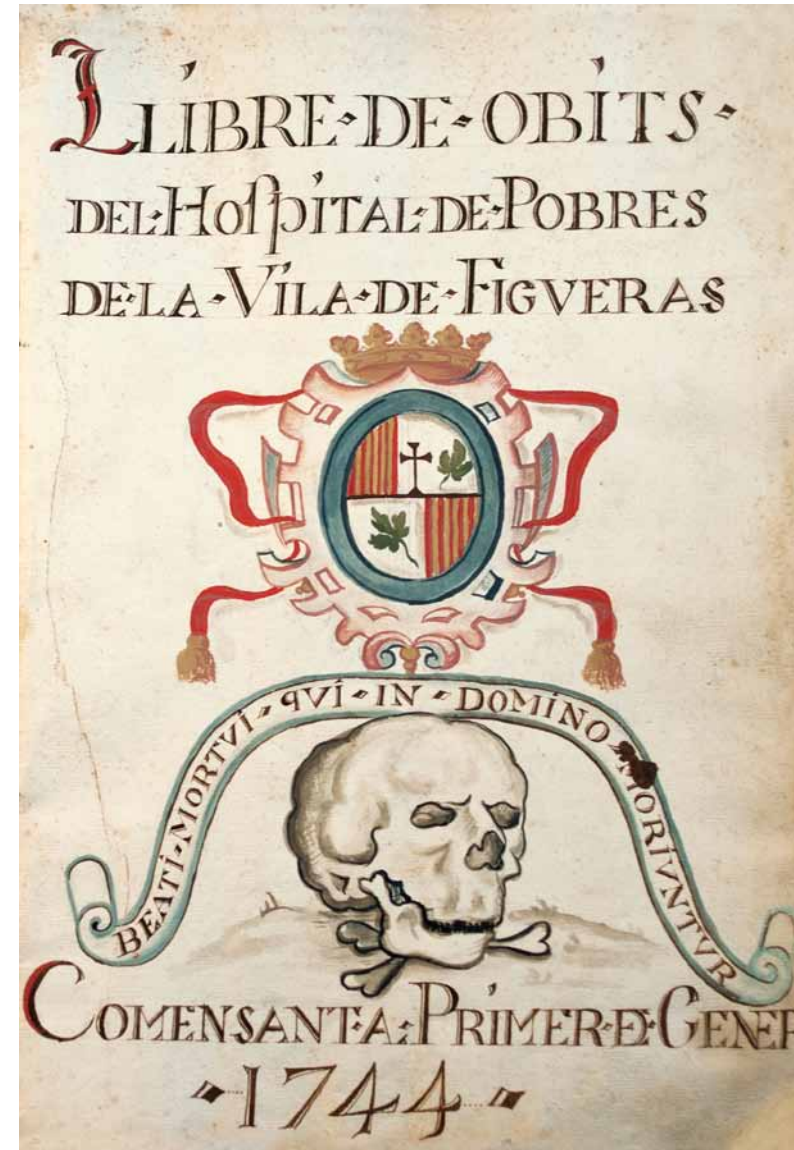 LLIBRE·DE·OBITS·
DEL·HOſPITAL·DE·POBRES
DE·LA·VILA·DE·FIGVERAS
BEATI·MORTVI·QVI·IN·DOMINO·MORIVNTVR
COMENSANT·A·PRIMER·DE·GENER
·1744·